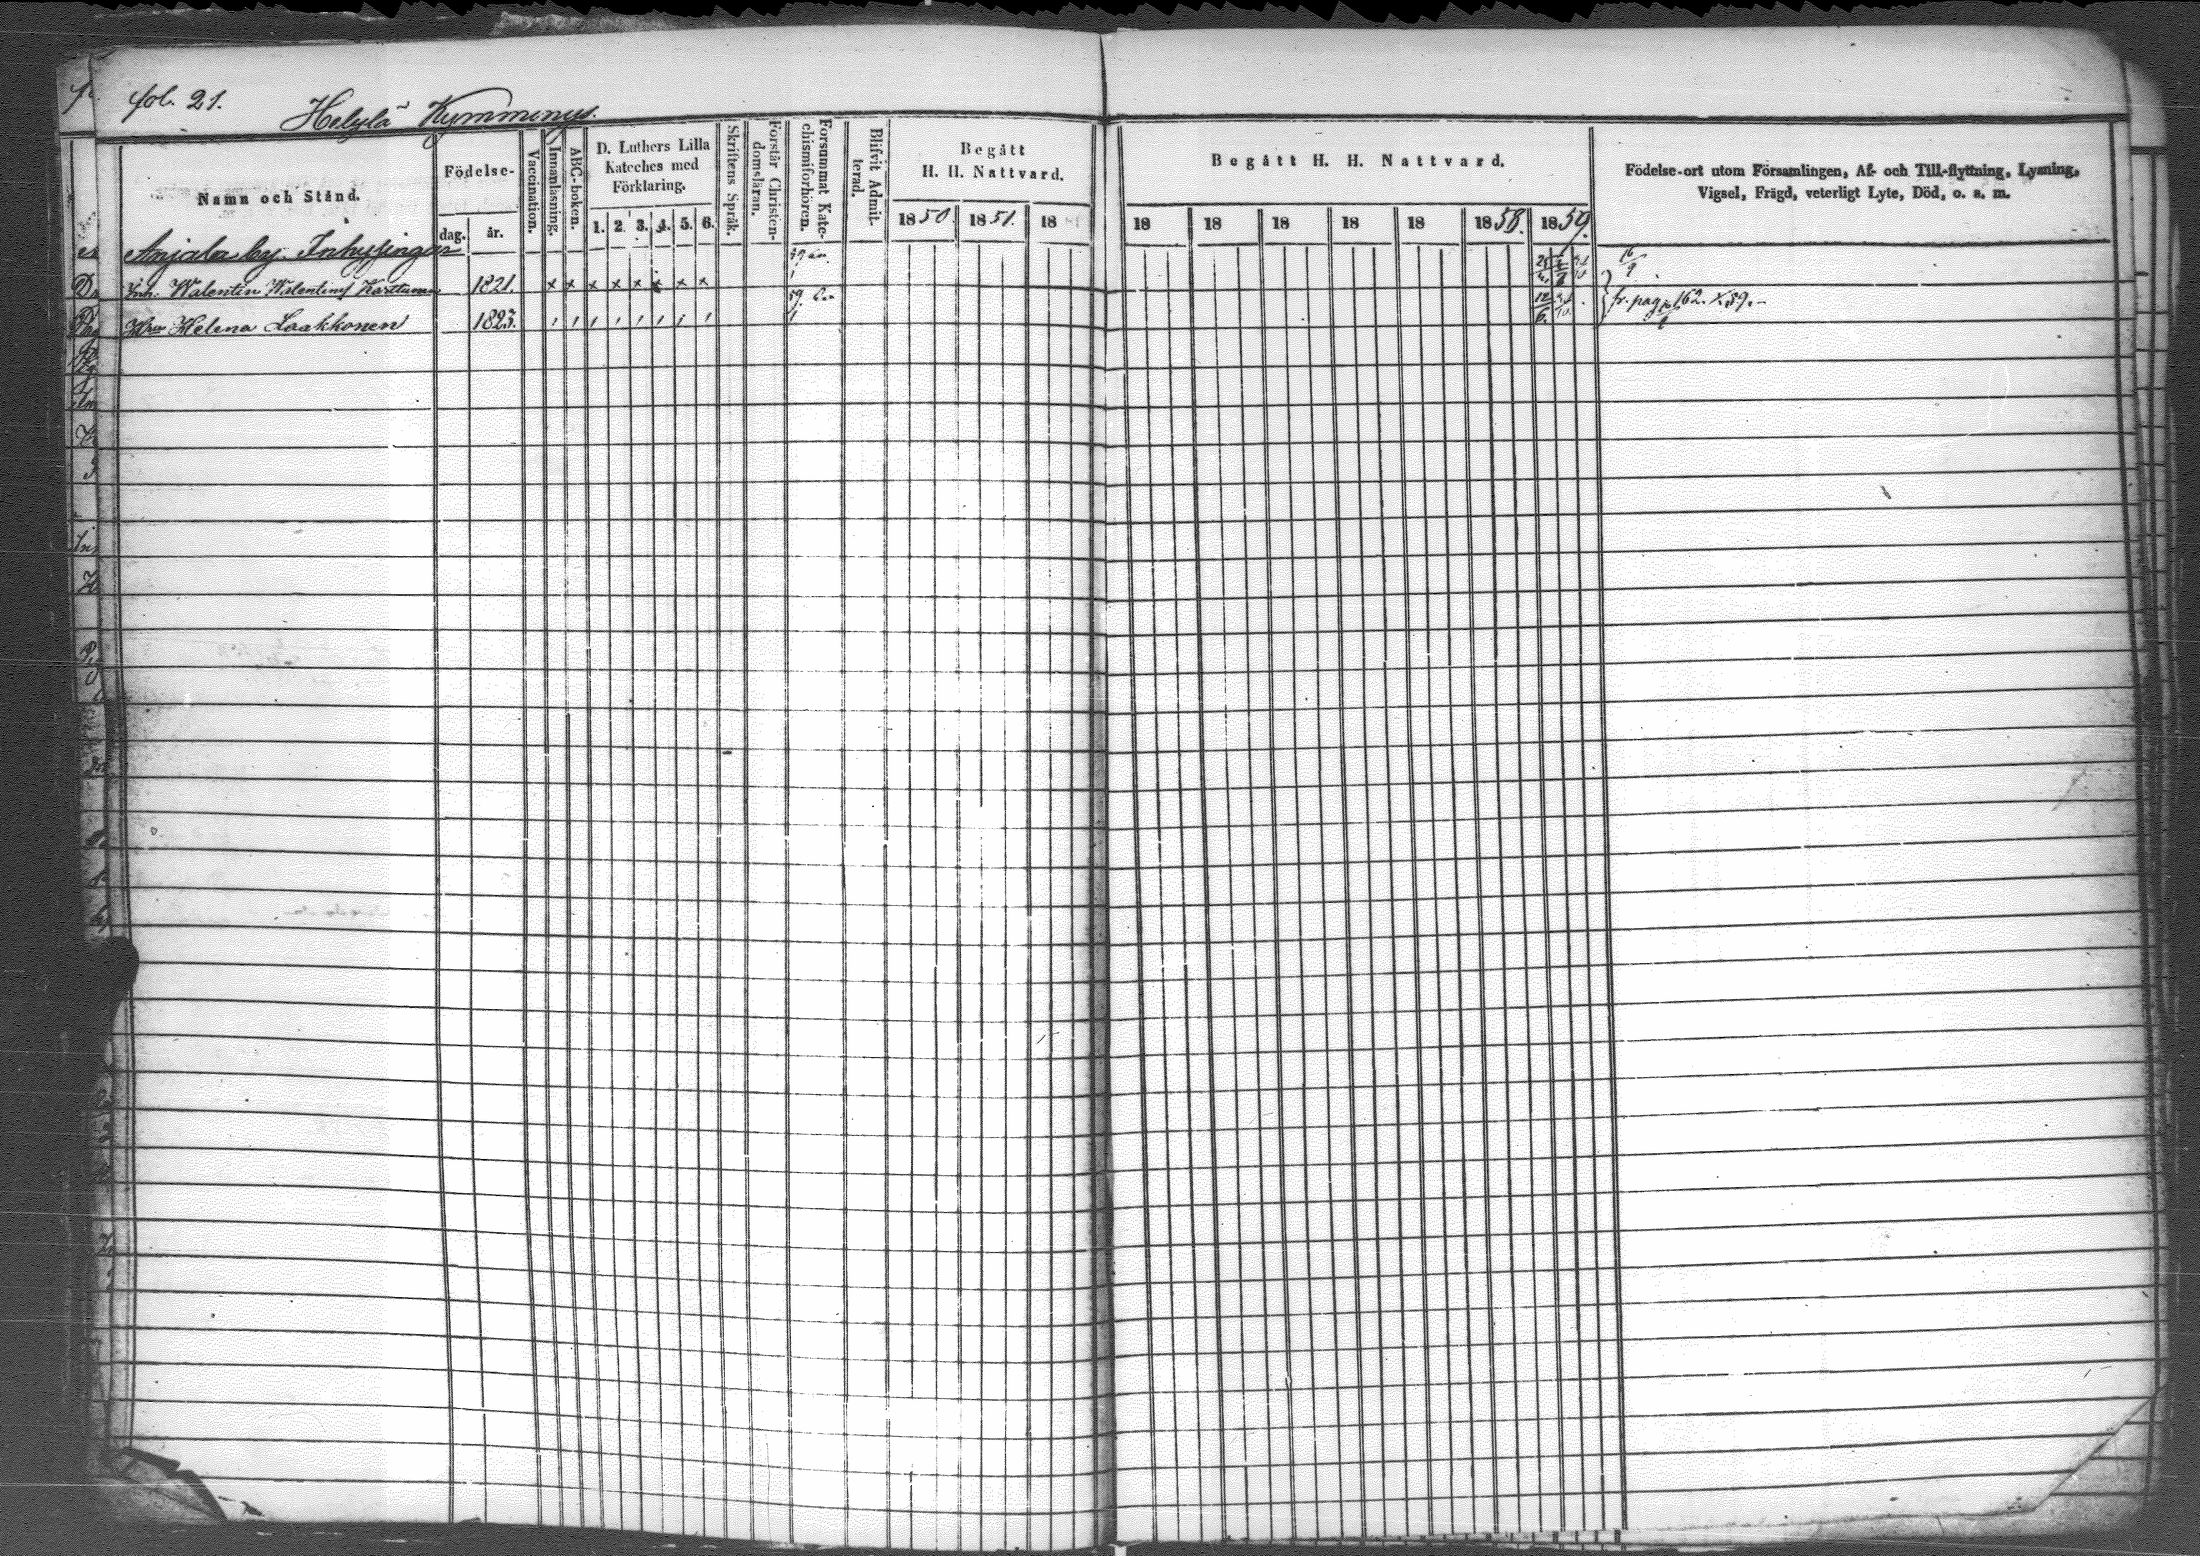 fol. 21. Helylä Kymmenys.
Namn och Stånd.
Födelse-
dag. år.
Vaccination.
Innanläsning.
ABC-boken.
D. Luthers Lilla
Kateches med
Förklaring.
1. 2. 3. 4. 5. 6.
Skriftens Språk.
Förstår Christen-
domsläran.
Försummat Kate-
chismiförhören.
Blifvit Admit-
terad.
Begått
H. H. Nattvard.
1850. 1851. 18
Begått H. H. Nattvard.
18 18 18 18 18 1858. 1859.
Födelse-ort utom Församlingen, Af- och Till-flyttning, Lysning,
Vigsel, Frägd, veterligt Lyte, Död, o. s. m.
Anjala by. Inhysingar
Inh. Walentin Walentins Karttunen 1821. x x x x x x x x
Hru Helena Laakkonen 1823.
fr. pag. 162. X. 59.